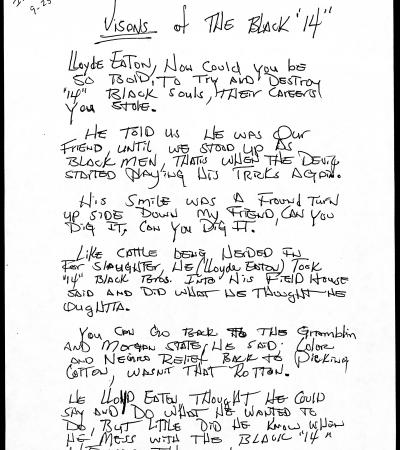 9-23
Visons of THE BLACK "14"
Lloyde EATON, How Could you be
SO BOLD, TO TRY AND DESTROY
"14" BLACK Souls, THEIR CAREERS
You STOLE.
HE TOLD US HE WAS OUR
FRIEND, UNTIL WE STOOD UP AS
BLACK MEN, THATS WHEN THE DEVIL
STARTED PLAYING HIS TRICKS AGAIN.
HIS SMILE WAS A FROUND TURN
UP SIDE DOWN MY FRIEND, CAN YOU
DIG IT, CAN YOU DIG IT.
LIKE CATTLE BEING HERDED IN
FOR SLAUGHTER, HE (Lloyde EATON) TOOK
"14" BLACK BROS. INTO HIS FIELD HOUSE
SAID AND DID WHAT HE THOUGHT HE
OUGHTTA.
YOU CAN GO BACK TO THE Grambling
AND MORGAN STATE, HE SAID: Color
AND NEGRO RELIEF BACK TO PICKING
COTTON, WASN'T THAT ROTTON.
HE LLOYD EATEN, THOUGHT HE COULD
SAY AND DO WHAT HE WANTED TO
DO, BUT LITTLE DID HE KNOW WHEN
HE MESS WITH THE BLACK "14"